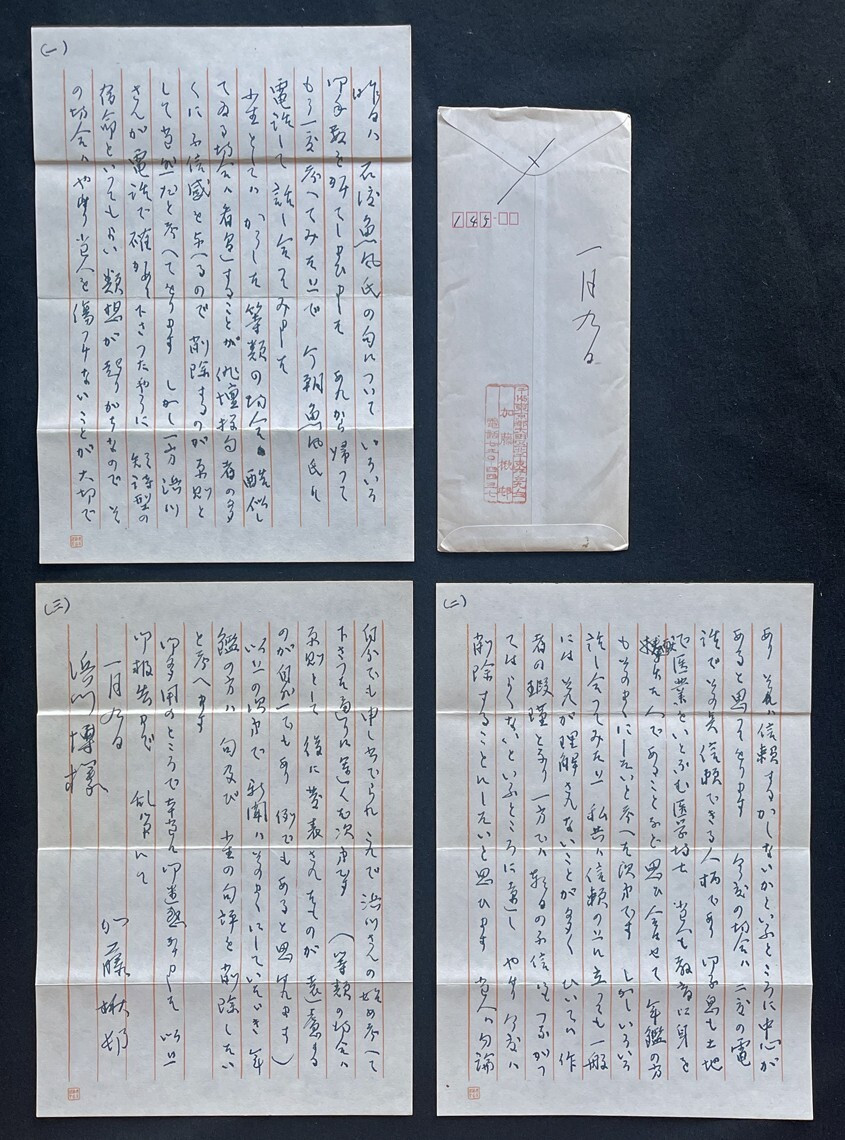 (一)
昨日は石渡魚風氏の句についていろいろ
御手数を煩てしまひました あれから帰つて
もう一度考へてみた上で 今朝魚風氏に
電話して話し合つてみました
小生としては かうした等類の場合 酷似し
てゐる場合は看過することが 俳壇投句者の多
くに不信感を与へるので 削除するのが原則と
して当然だと考へてをります しかし一方 浜川
さんが電話で確かめて下さつたやうに 短詩型の
宿命といつてもよい類想が起りがちなので そ
の場合はやはり当人を傷つけないことが大切で
(二)
あり それは信頼するかしないかといふところに中心が
あると思つてをります 今度の場合は 二度の電
話でその点信頼できる人柄であり 御子息も土地
で医業をいとなむ医学博士 当人も教育に身を
捧げた人であることなど思ひ合せて 年鑑の方
もそのままにしたいと考へた次第です しかしいろいろ
話し合つてみた上 私共は信頼の上に立つても一般
には それが理解されないことが多く ひいては作
者の瑕瑾となり 一方では 動もすれば不信にもつながつ
てはよくないといふところに達し やはり今度は
削除することにしたいと思ひます 当人は勿論
(三)
自分でも申し出でられ これで浜川さんの始め考へて
下さつた通りに運んだ次第です (等類の場合は
原則として 後に発表されたものが遠慮する
のが自然でもあり 例でもあると思はれます)
以上の次第で 新聞はそのままにしていただき 年
鑑の方は 句及び 小生の句評を削除したい
と考へます
御多用のところで本当に御迷惑かけました 以上
御報告まで 乱筆にて
一月九日
加藤楸邨
浜川博様
145
一月九日
加藤楸邨